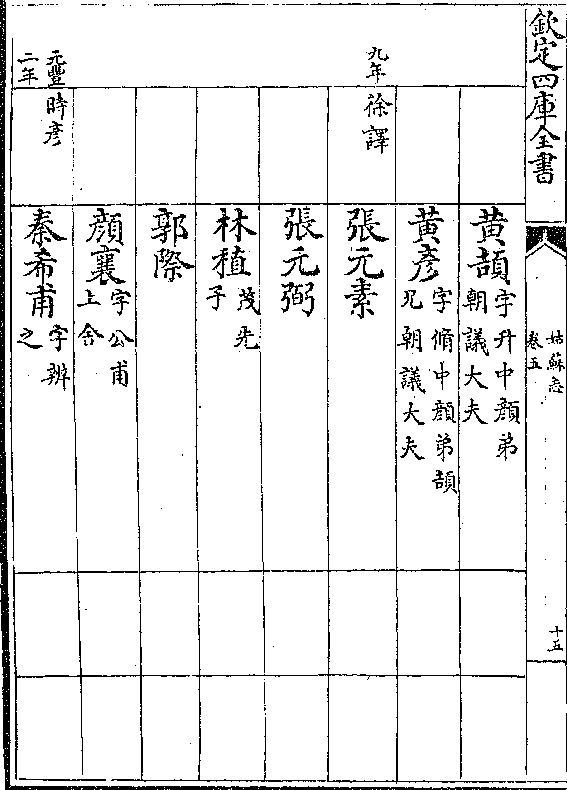 欽定四庫全書
姑蘇志
卷五
十五
黄頡字升中顔弟
朝議大夫
黄彦字脩中顔弟頡
兄朝議大夫
九年
徐鐸
張元素
張元弼
林植茂先
子
郭際
顔襄字公甫
上舍
元豐
二年
時彦
秦希甫字辨
之